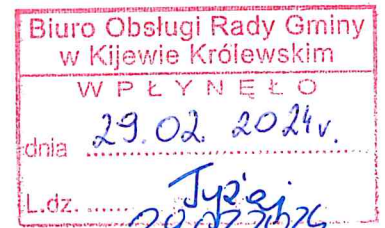 Biuro Obsługi Rady Gminy
w Kijewie Królewskim
WPŁYNĘŁO
dnia 29.02.2024r.
L.dz. ......